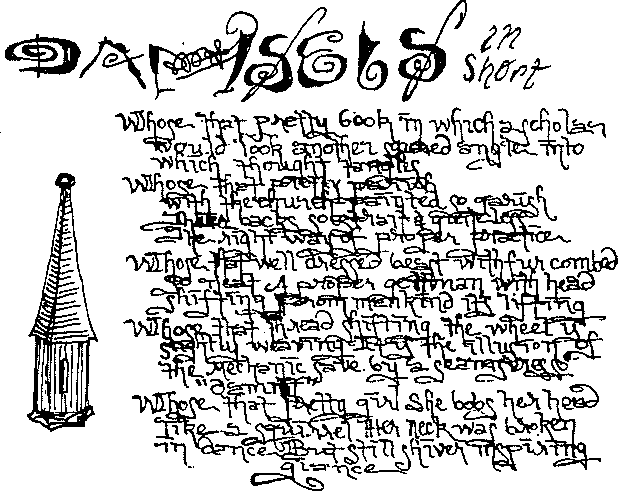 DAMSELS in
short
Whose that pretty book in which a scholar
would look another sacred angler into
which thought tangles
Whose that pretty parish
with the church painted so garish
backs so straight a
the right way of proper practice
Whose that well dressed beast with fur combed
so neat A proper gentman with head
shifting From mankind it's lifting
Whose that thread shifting the wheel is
slowly weaving It is the illusion of
the mechanic save by a seamstress
"damnit"
Whose that pretty girl She bobs her head
like a squirrel Her neck was broken
in dance But still shiver inspiring
glance